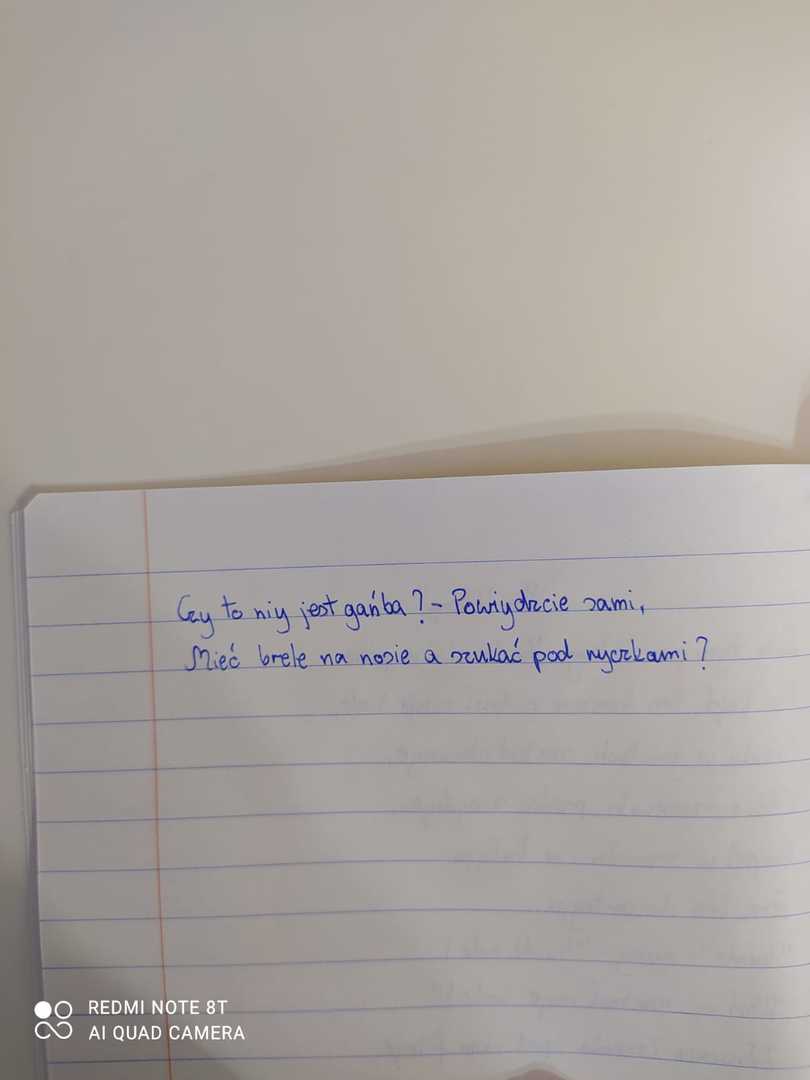 Czy to niy jest gańba? - Powiydzcie sami,
Mieć brele na nosie a szukać pod ryczkami?
REDMI NOTE 8T
AI QUAD CAMERA